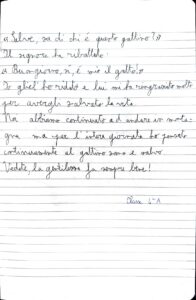 «Salve, sa di chi è questo gattino?»
Il signore ha ribattuto:
«Buongiorno, sì, è mio il gatto!»
Io gliel'ho ridato e lui mi ha ringraziato molto
per avergli salvato la vita.
Noi abbiamo continuato ad andare in monta-
gna ma per l'intera giornata ho pensato
continuamente al gattino sano e salvo.
Vedete, la gentilezza fa sempre bene!
Classe 4ªA